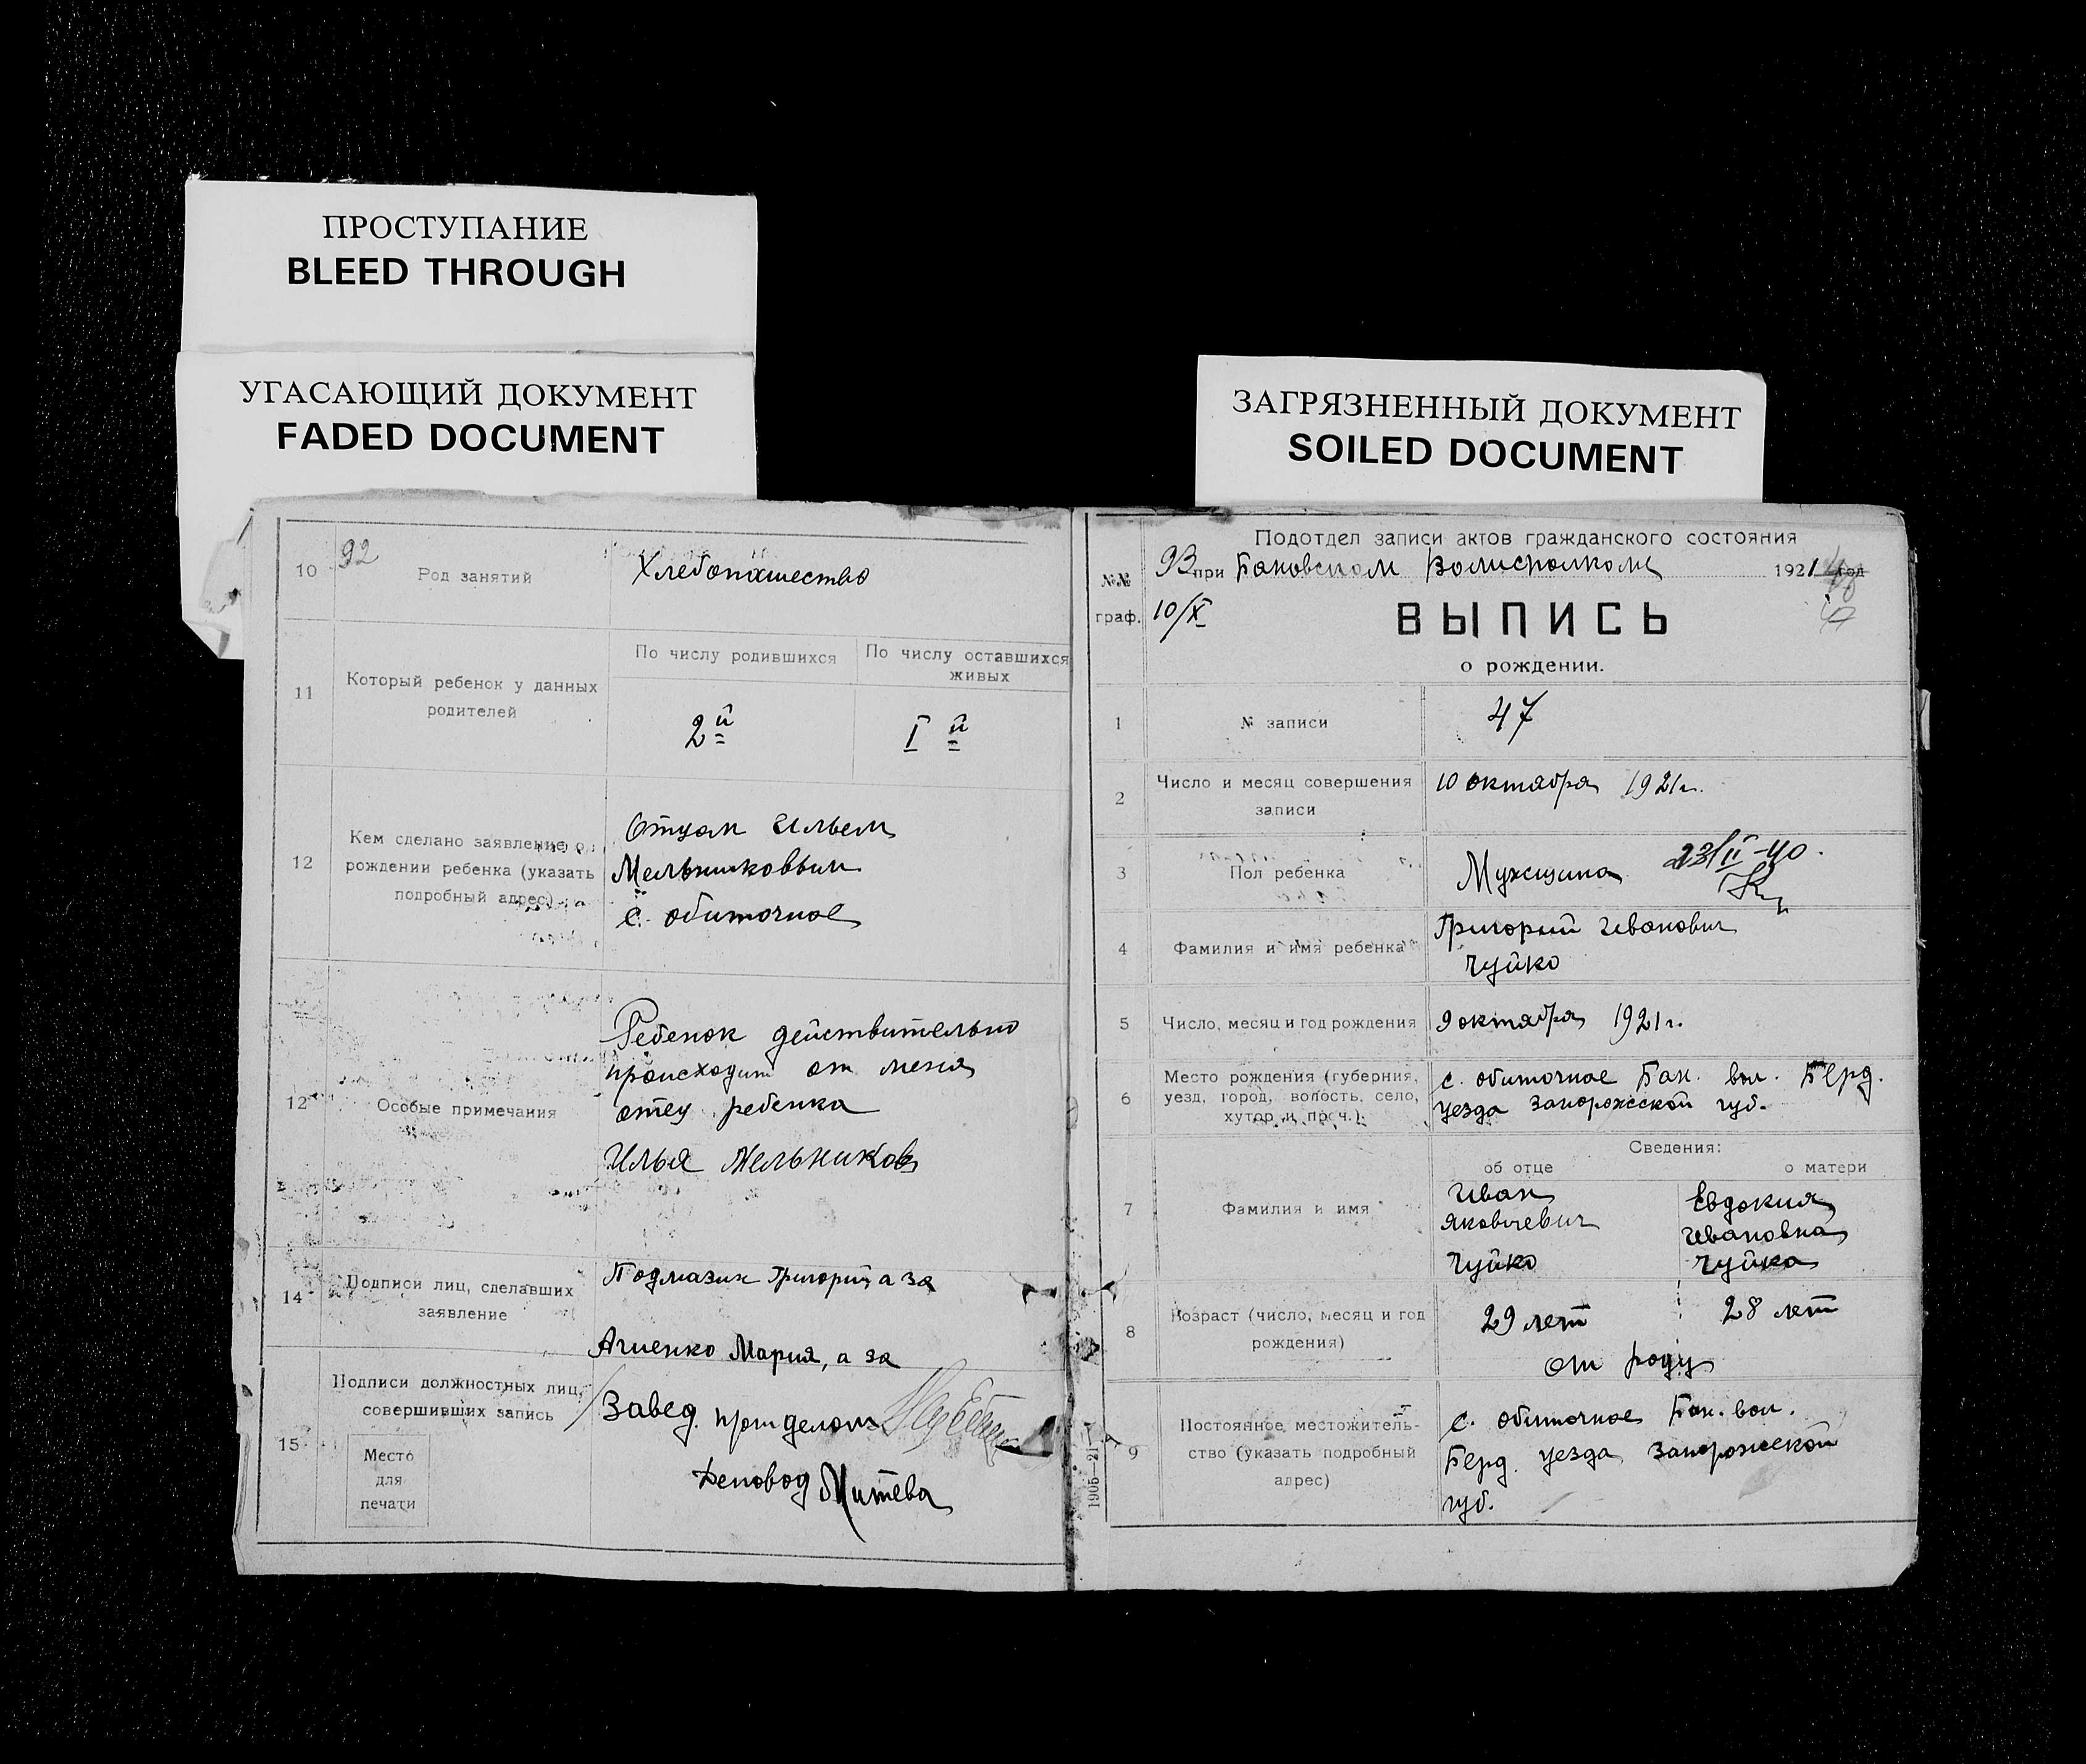 ПРОСТУПАНИЕ
BLEED THROUGH
УГАСАЮЩИЙ ДОКУМЕНТ
FADED DOCUMENT
ЗАГРЯЗНЕННЫЙ ДОКУМЕНТ
SOILED DOCUMENT
92
10 Род занятий Хлебопашество
11 Который ребенок у данных родителей
По числу родившихся По числу оставшихся живых
2й I й
12 Кем сделано заявление о рождении ребенка (указать подробный адрес)
Отцом Ильем
Мельниковым
с. обиточное
12 Особые примечания
Ребенок действительно
происходит от меня
отец ребенка
Илья Мельников
14 Подписи лиц, сделавших заявление
Подмазин Григорий, а за
Агиенко Мария, а за
15 Подписи должностных лиц, совершивших запись
Завед.
Деловод
Место
для
печати
Подотдел записи актов гражданского состояния
№№ 93 при Бановском Волисполкоме 1921 год
граф. 10/X
ВЫПИСЬ
о рождении.
1 № записи 47
2 Число и месяц совершения записи 10 октября 1921 г.
3 Пол ребенка Мужщина 23/II-40.
4 Фамилия и имя ребенка Григорий Иванович
Чуйко
5 Число, месяц и год рождения 9 октября 1921 г.
6 Место рождения (губерния, уезд, город, волость, село, хутор и проч.)
с. обиточное Бан. вол. Берд.
уезда Запорожской губ.
Сведения:
об отце о матери
7 Фамилия и имя
Иван Евдокия
Яковлевич Ивановна
Чуйко Чуйка
8 Возраст (число, месяц и год рождения)
29 лет 28 лет
от роду
9 Постоянное местожительство (указать подробный адрес)
с. обиточное Бан. вол.
Берд. уезда Запорожской
губ.
1905—21 г.